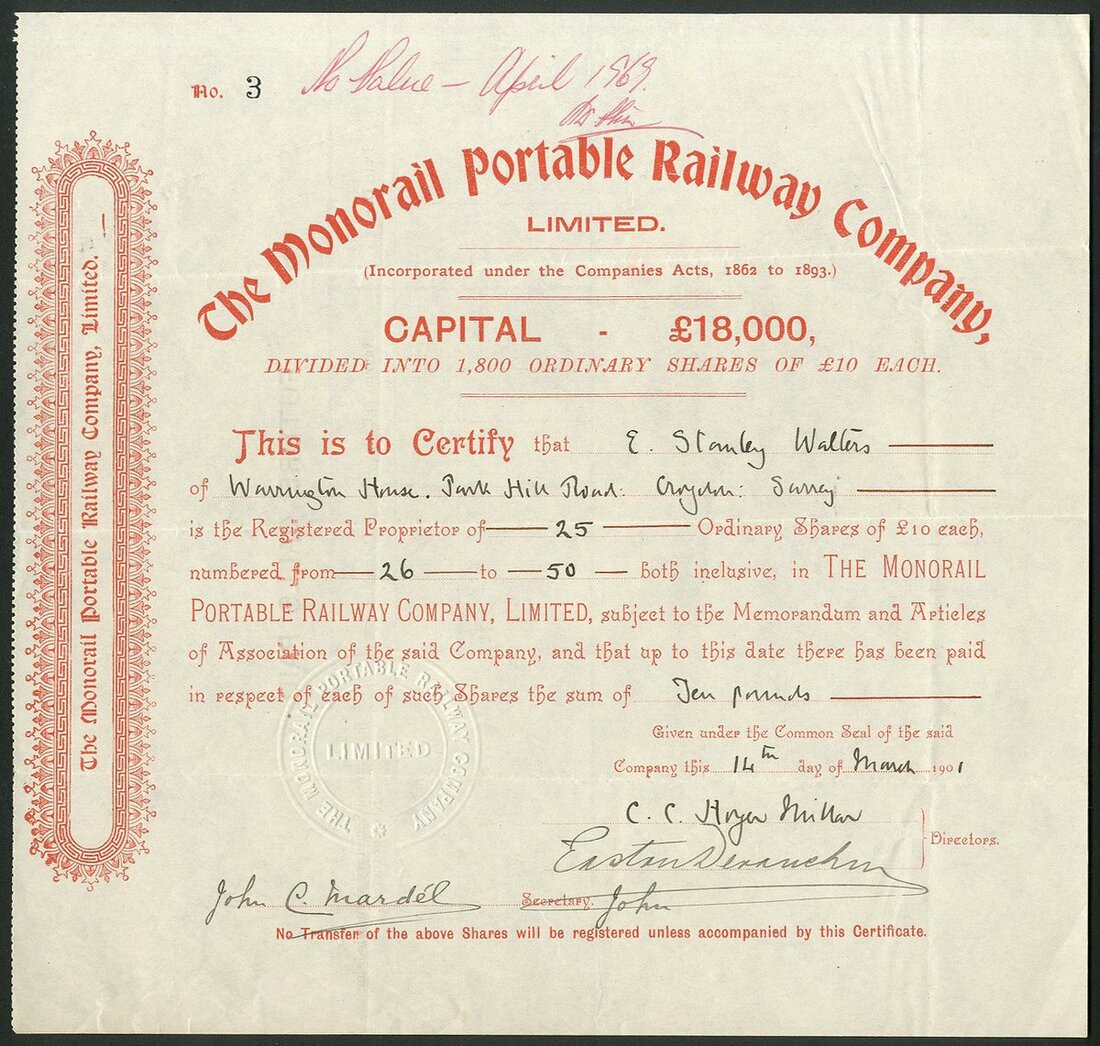 No. 3 No Value - April 1969.
The Monorail Portable Railway Company,
LIMITED.
(Incorporated under the Companies Acts, 1862 to 1893.)
CAPITAL - £18,000,
DIVIDED INTO 1,800 ORDINARY SHARES OF £10 EACH.
This is to Certify that E. Stanley Walters
of Warrington House. Park Hill Road. Croydon. Surrey
is the Registered Proprietor of 25 Ordinary Shares of £10 each,
numbered from 26 to 50 both inclusive, in THE MONORAIL
PORTABLE RAILWAY COMPANY, LIMITED, subject to the Memorandum and Articles
of Association of the said Company, and that up to this date there has been paid
in respect of each of such Shares the sum of Ten pounds
Given under the Common Seal of the said
Company this 14th day of March 1901
C. C. Hoyer Millar
Easton Devonshire
Directors.
John C. Mardél Secretary. John
No Transfer of the above Shares will be registered unless accompanied by this Certificate.
The Monorail Portable Railway Company, Limited.
THE MONORAIL PORTABLE RAILWAY COMPANY
LIMITED